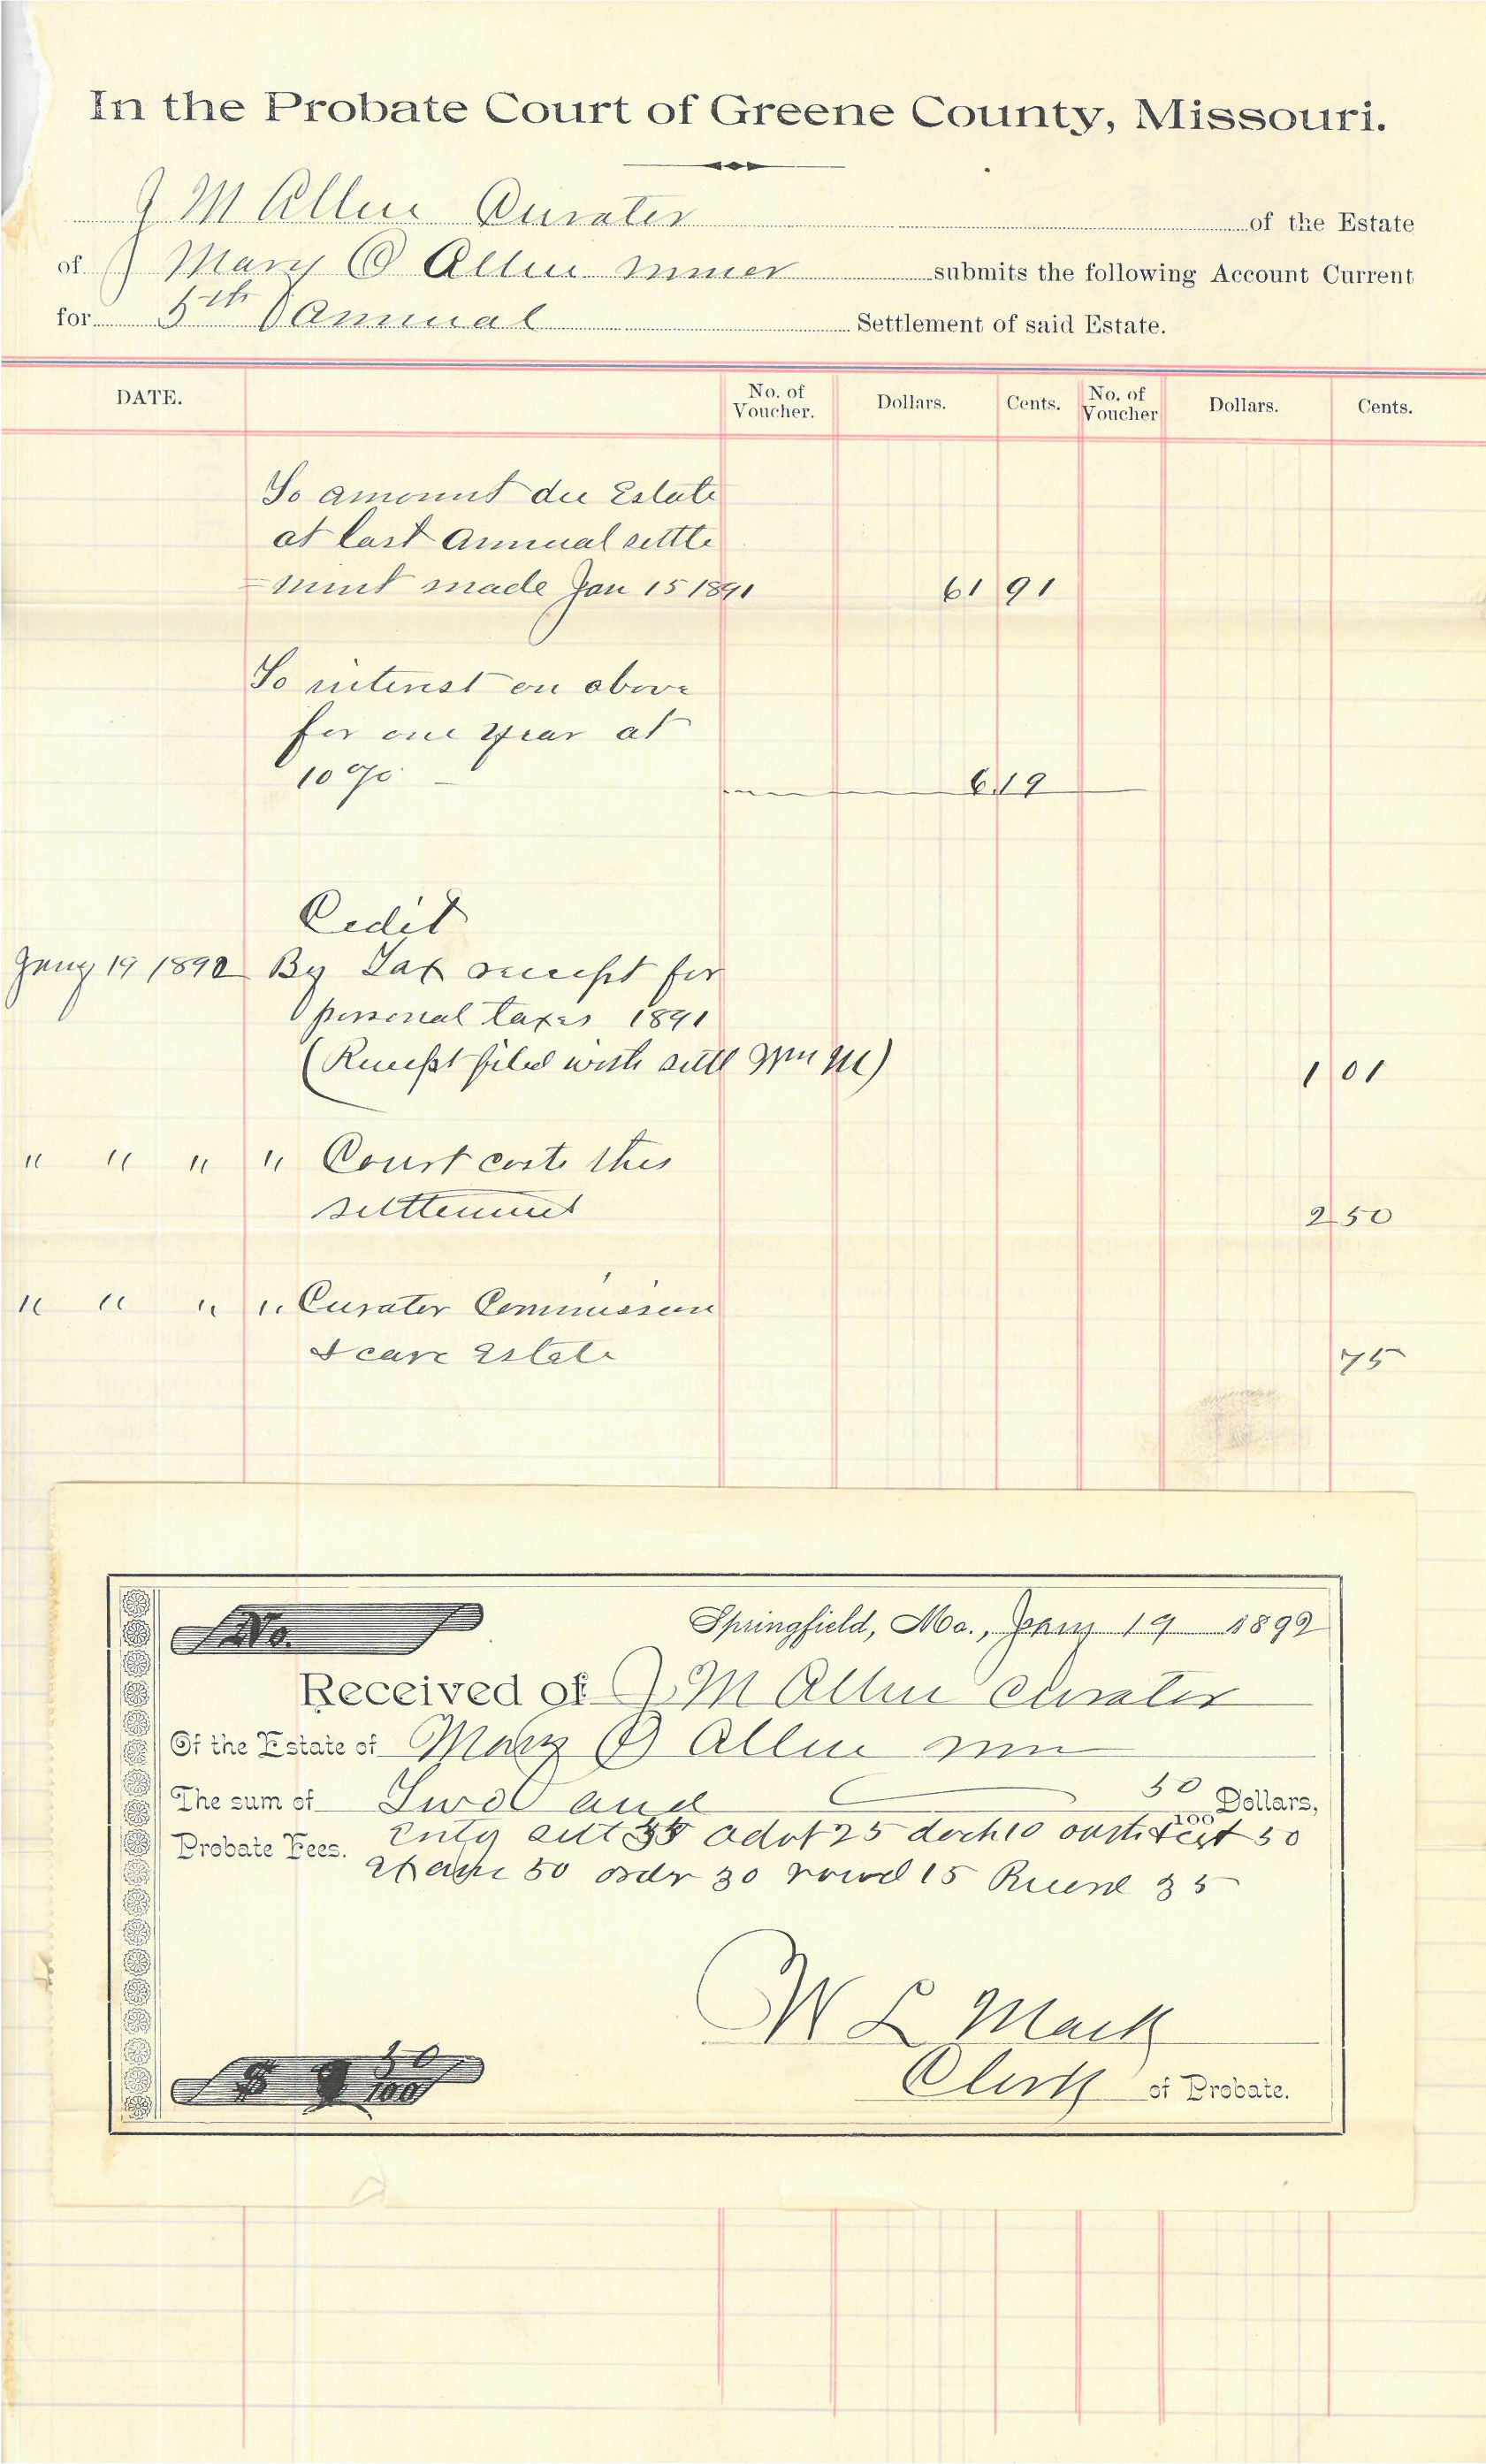 In the Probate Court of Greene County, Missouri.
J M Allen Curator of the Estate
of Mary O Allen minor submits the following Account Current
for 5th Annual Settlement of said Estate.
DATE. No. of Voucher. Dollars. Cents. No. of Voucher Dollars. Cents.
To amount due Estate
at last annual settle
=ment made Jan 15 1891 61 91
To interest on above
for one year at
10 % 6 19
Cedit
Jany 19 1892 By Tax receipt for
personal taxes 1891
(Receipt filed with settl Wm M) 1 01
" " " " Court costs this
settlement 2 50
" " " " Curator Commission
& care Estate 75
No. Springfield, Mo., Jany 19 1892
Received of J. M Allen Curator
Of the Estate of Mary O Allen min
The sum of Two and 50/100 Dollars,
Probate Fees. 25 10 50
50 order 30 15 35
W L Mack
Clerk of Probate.
$ 2 50/100